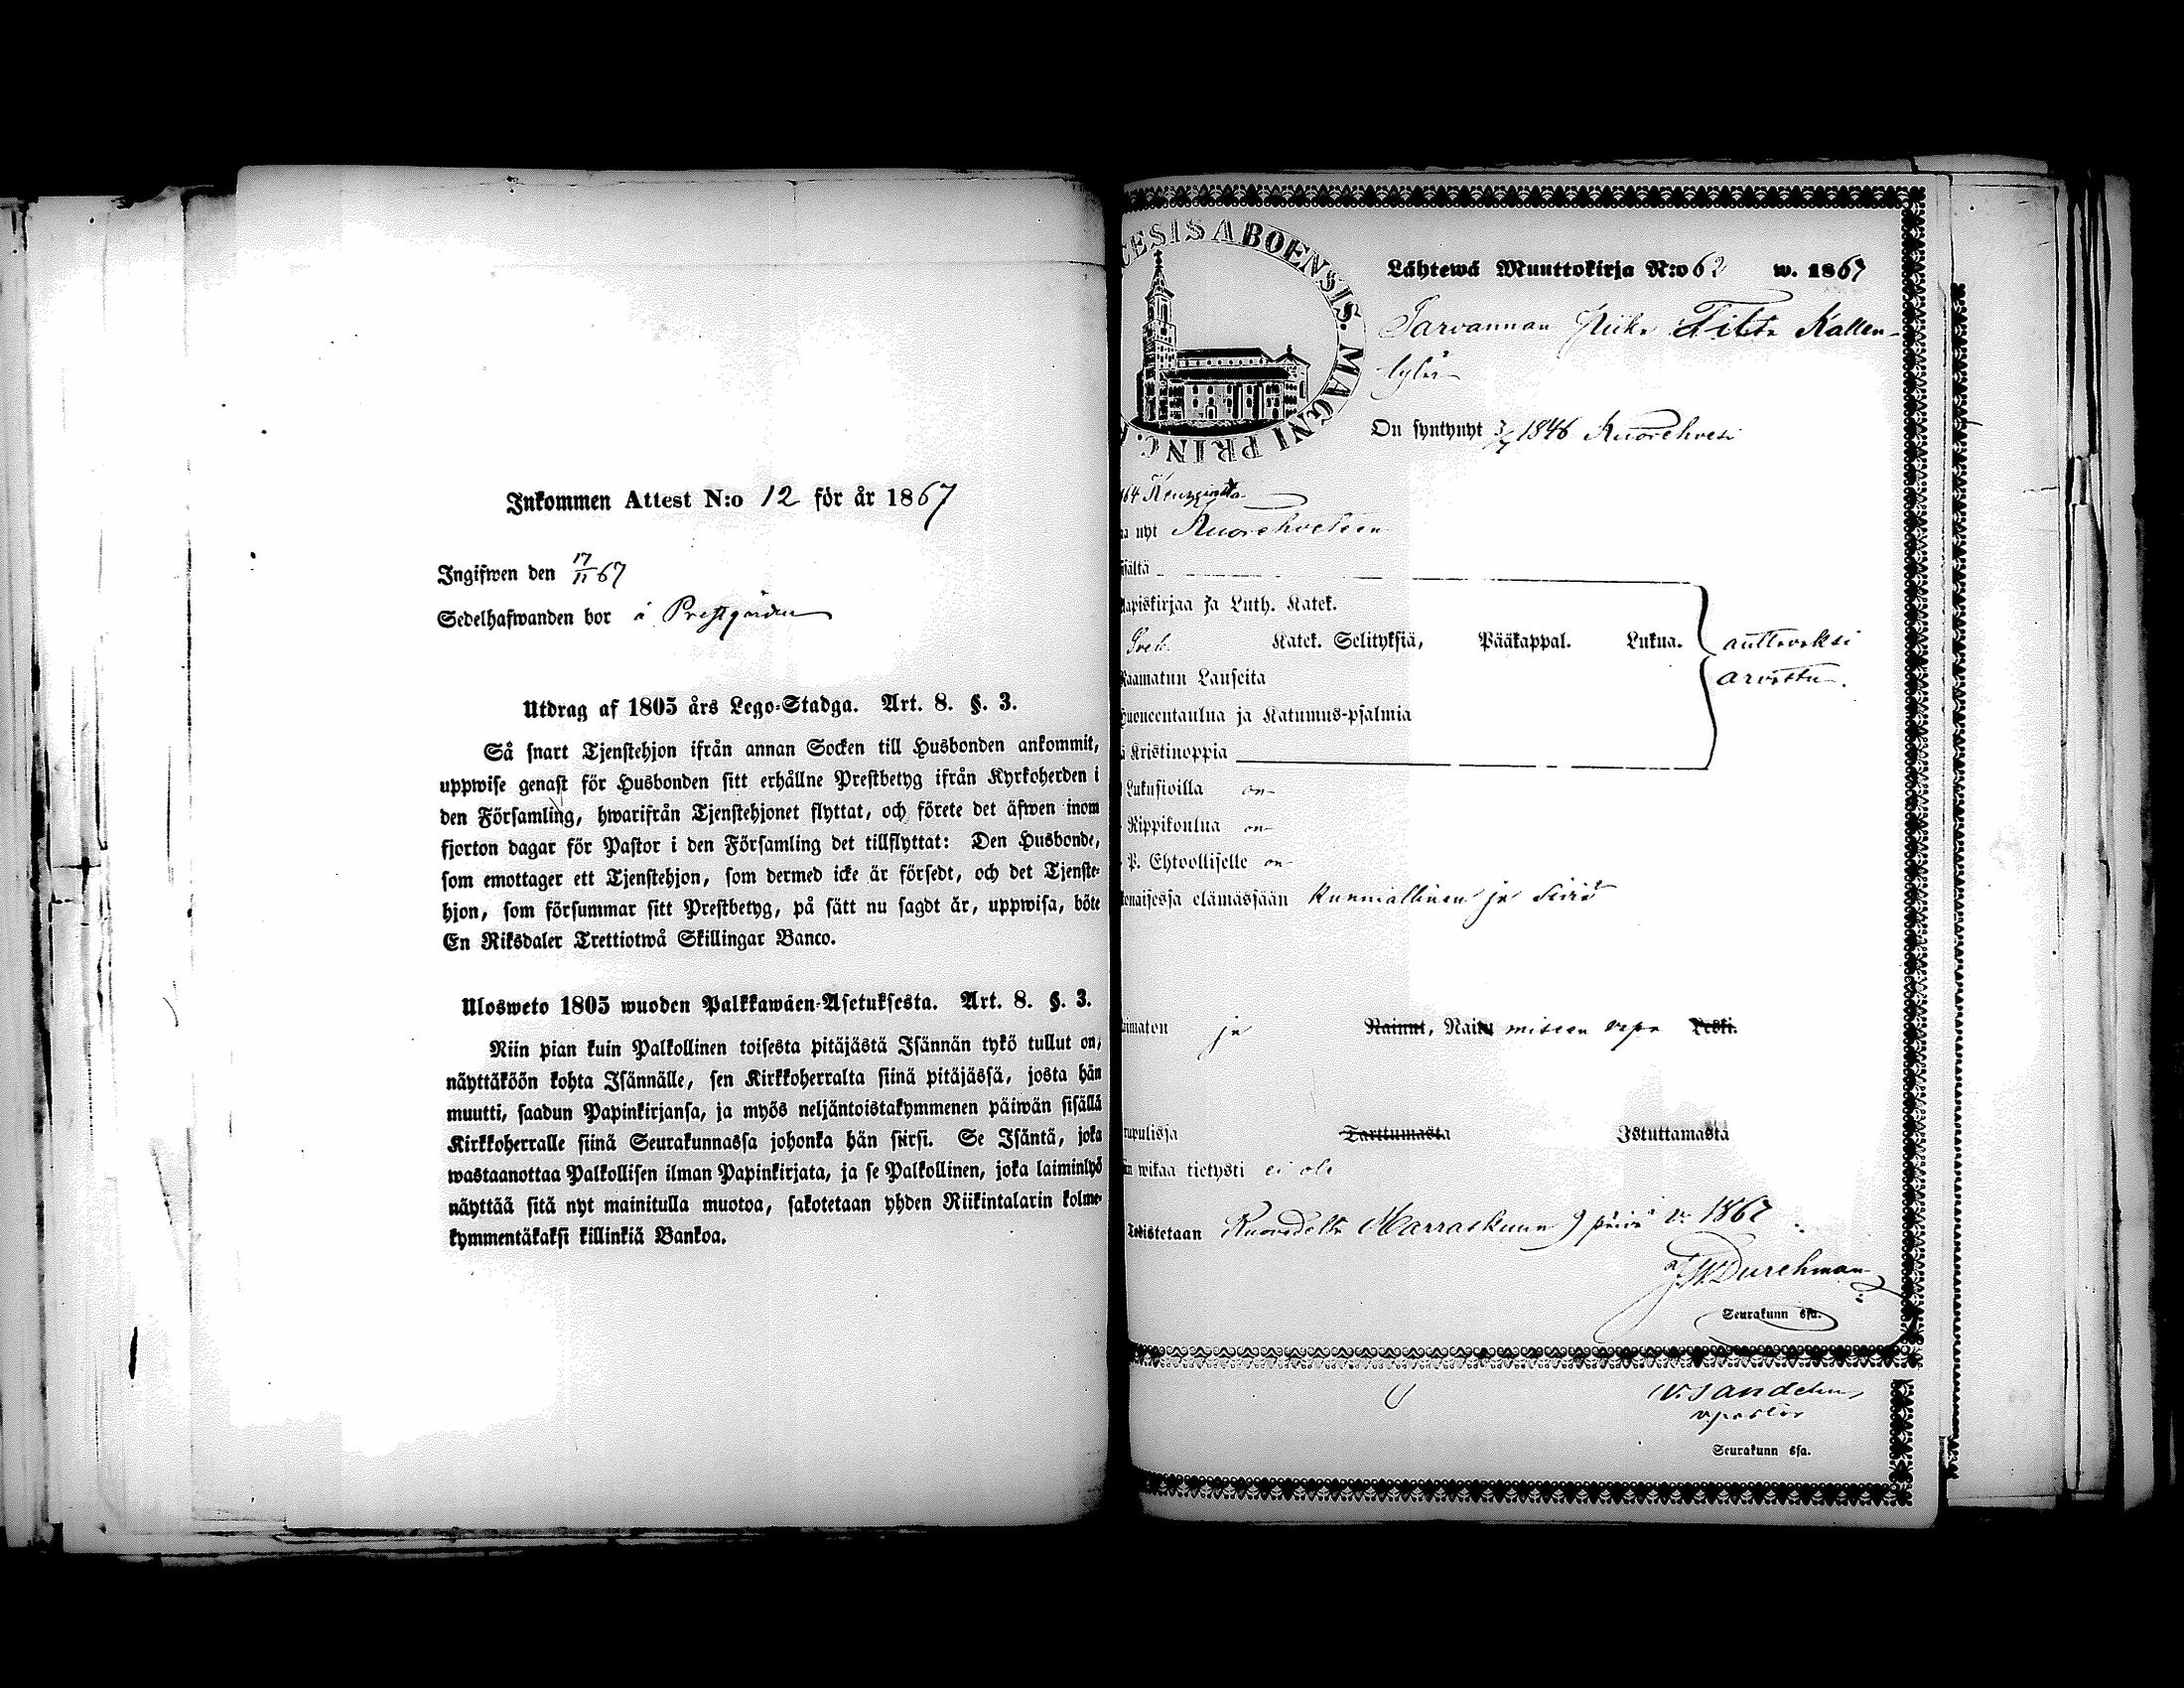 Inkommen Attest N:o 12 för år 1867
Ingifwen den 17/11 67
Sedelhafwanden bor å Prestgården
Utdrag af 1805 års Lego-Stadga. Art. 8. §. 3.
Så snart Tjenstehjon ifrån annan Socken till Husbonden ankommit,
uppwise genast för Husbonden sitt erhållne Prestbetyg ifrån Kyrkoherden i
den Församling, hwarifrån Tjenstehjonet flyttat, och förete det äfwen inom
fjorton dagar för Pastor i den Församling det tillflyttat: Den Husbonde,
som emottager ett Tjenstehjon, som dermed icke är försedt, och det Tjenste-
hjon, som försummar sitt Prestbetyg, på sätt nu sagdt är, uppwisa, böte
En Riksdaler Trettiotwå Skillingar Banco.
Ulosweto 1805 wuoden Palkkawäen-Asetuksesta. Art. 8. §. 3.
Niin pian kuin Palkollinen toisesta pitäjästä Isännän tykö tullut on,
näyttäköön kohta Isännälle, sen Kirkkoherralta siinä pitäjässä, josta hän
muutti, saadun Papinkirjansa, ja myös neljäntoistakymmenen päiwän sisällä
Kirkkoherralle siinä Seurakunnassa johonka hän siirsi. Se Isäntä, joka
wastaanottaa Palkollisen ilman Papinkirjata, ja se Palkollinen, joka laiminlyö
näyttää sitä nyt mainitulla muotoa, sakotetaan yhden Riikintalarin kolme-
kymmentäkaksi killinkiä Bankoa.
CESIS ABOENSIS. MAGNI PRINC.
Lähtewä Muuttokirja N:o 62 w. 1867
Kallen-
On syntynyt 3/7 1846 Kuorehvesi
nyt Kuorehveteen
sältä
apiskirjaa ja Luth. Katek.
Katek. Selityksiä, Pääkappal. Lukua. auttavaksi
Raamatun Lauseita arvattu.
Huoneentaulua ja Katumus-psalmia
Kristinoppia
Lukusioilla on
Rippikoulua on
P. Ehtoolliselle on
naisessa elämässään kunniallinen ja siviä
imaton ja Rainut, Nai miseen vapa Leski.
rupulissa Tarttumasta Istuttamasta
wikaa tietysti ei ole
Todistetaan Marraskuun 9 päivä v. 1867
Durchman
Seurakunn ssa.
vpastor
Seurakunn ssa.